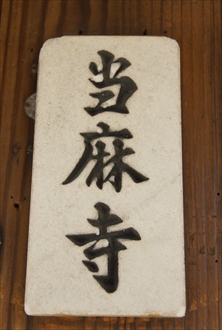 当麻寺